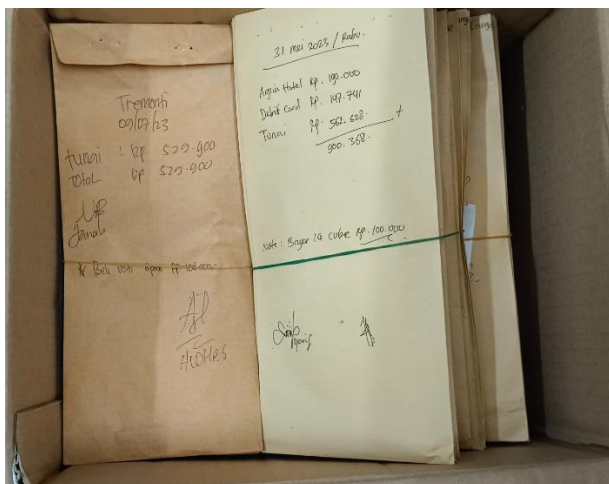 Tremonti
09/07/23
tunai : Rp 529.900
TOTAL Rp 529.900
31 mei 2023 / Rabu.
Agria Hotel Rp. 190.000
Debit Card Rp. 147.741
Tunai Rp. 562.628. +
900.368.
Note : Bayar ice cube Rp. 100.000